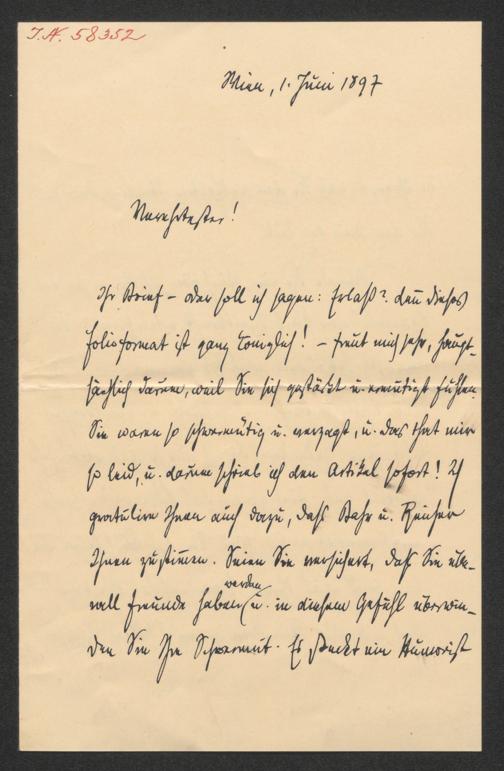 I.N. 58352
Wien, 1. Juni 1897
Verehrtester!
Ihr Brief – oder soll ich sagen: Erlaß? deñ dieses
Folioformat ist ganz königlich! – freut mich sehr, haupt-
sächlich darum, weil Sie sich gestärkt u. ermutigt fühlen.
Sie waren so schwermütig u. verzagt, u. das that mir
so leid, u. darum schrieb ich den Artikel sofort! Ich
gratulire Ihnen auch dazu, daß Bahr u.
Ihnen zustim̃en. Seien Sie versichert, daß Sie übe-
rall Freunde haben werden u. in diesem Gefühl überwin-
den Sie Ihre Schwermut. Es steckt ein Humorist